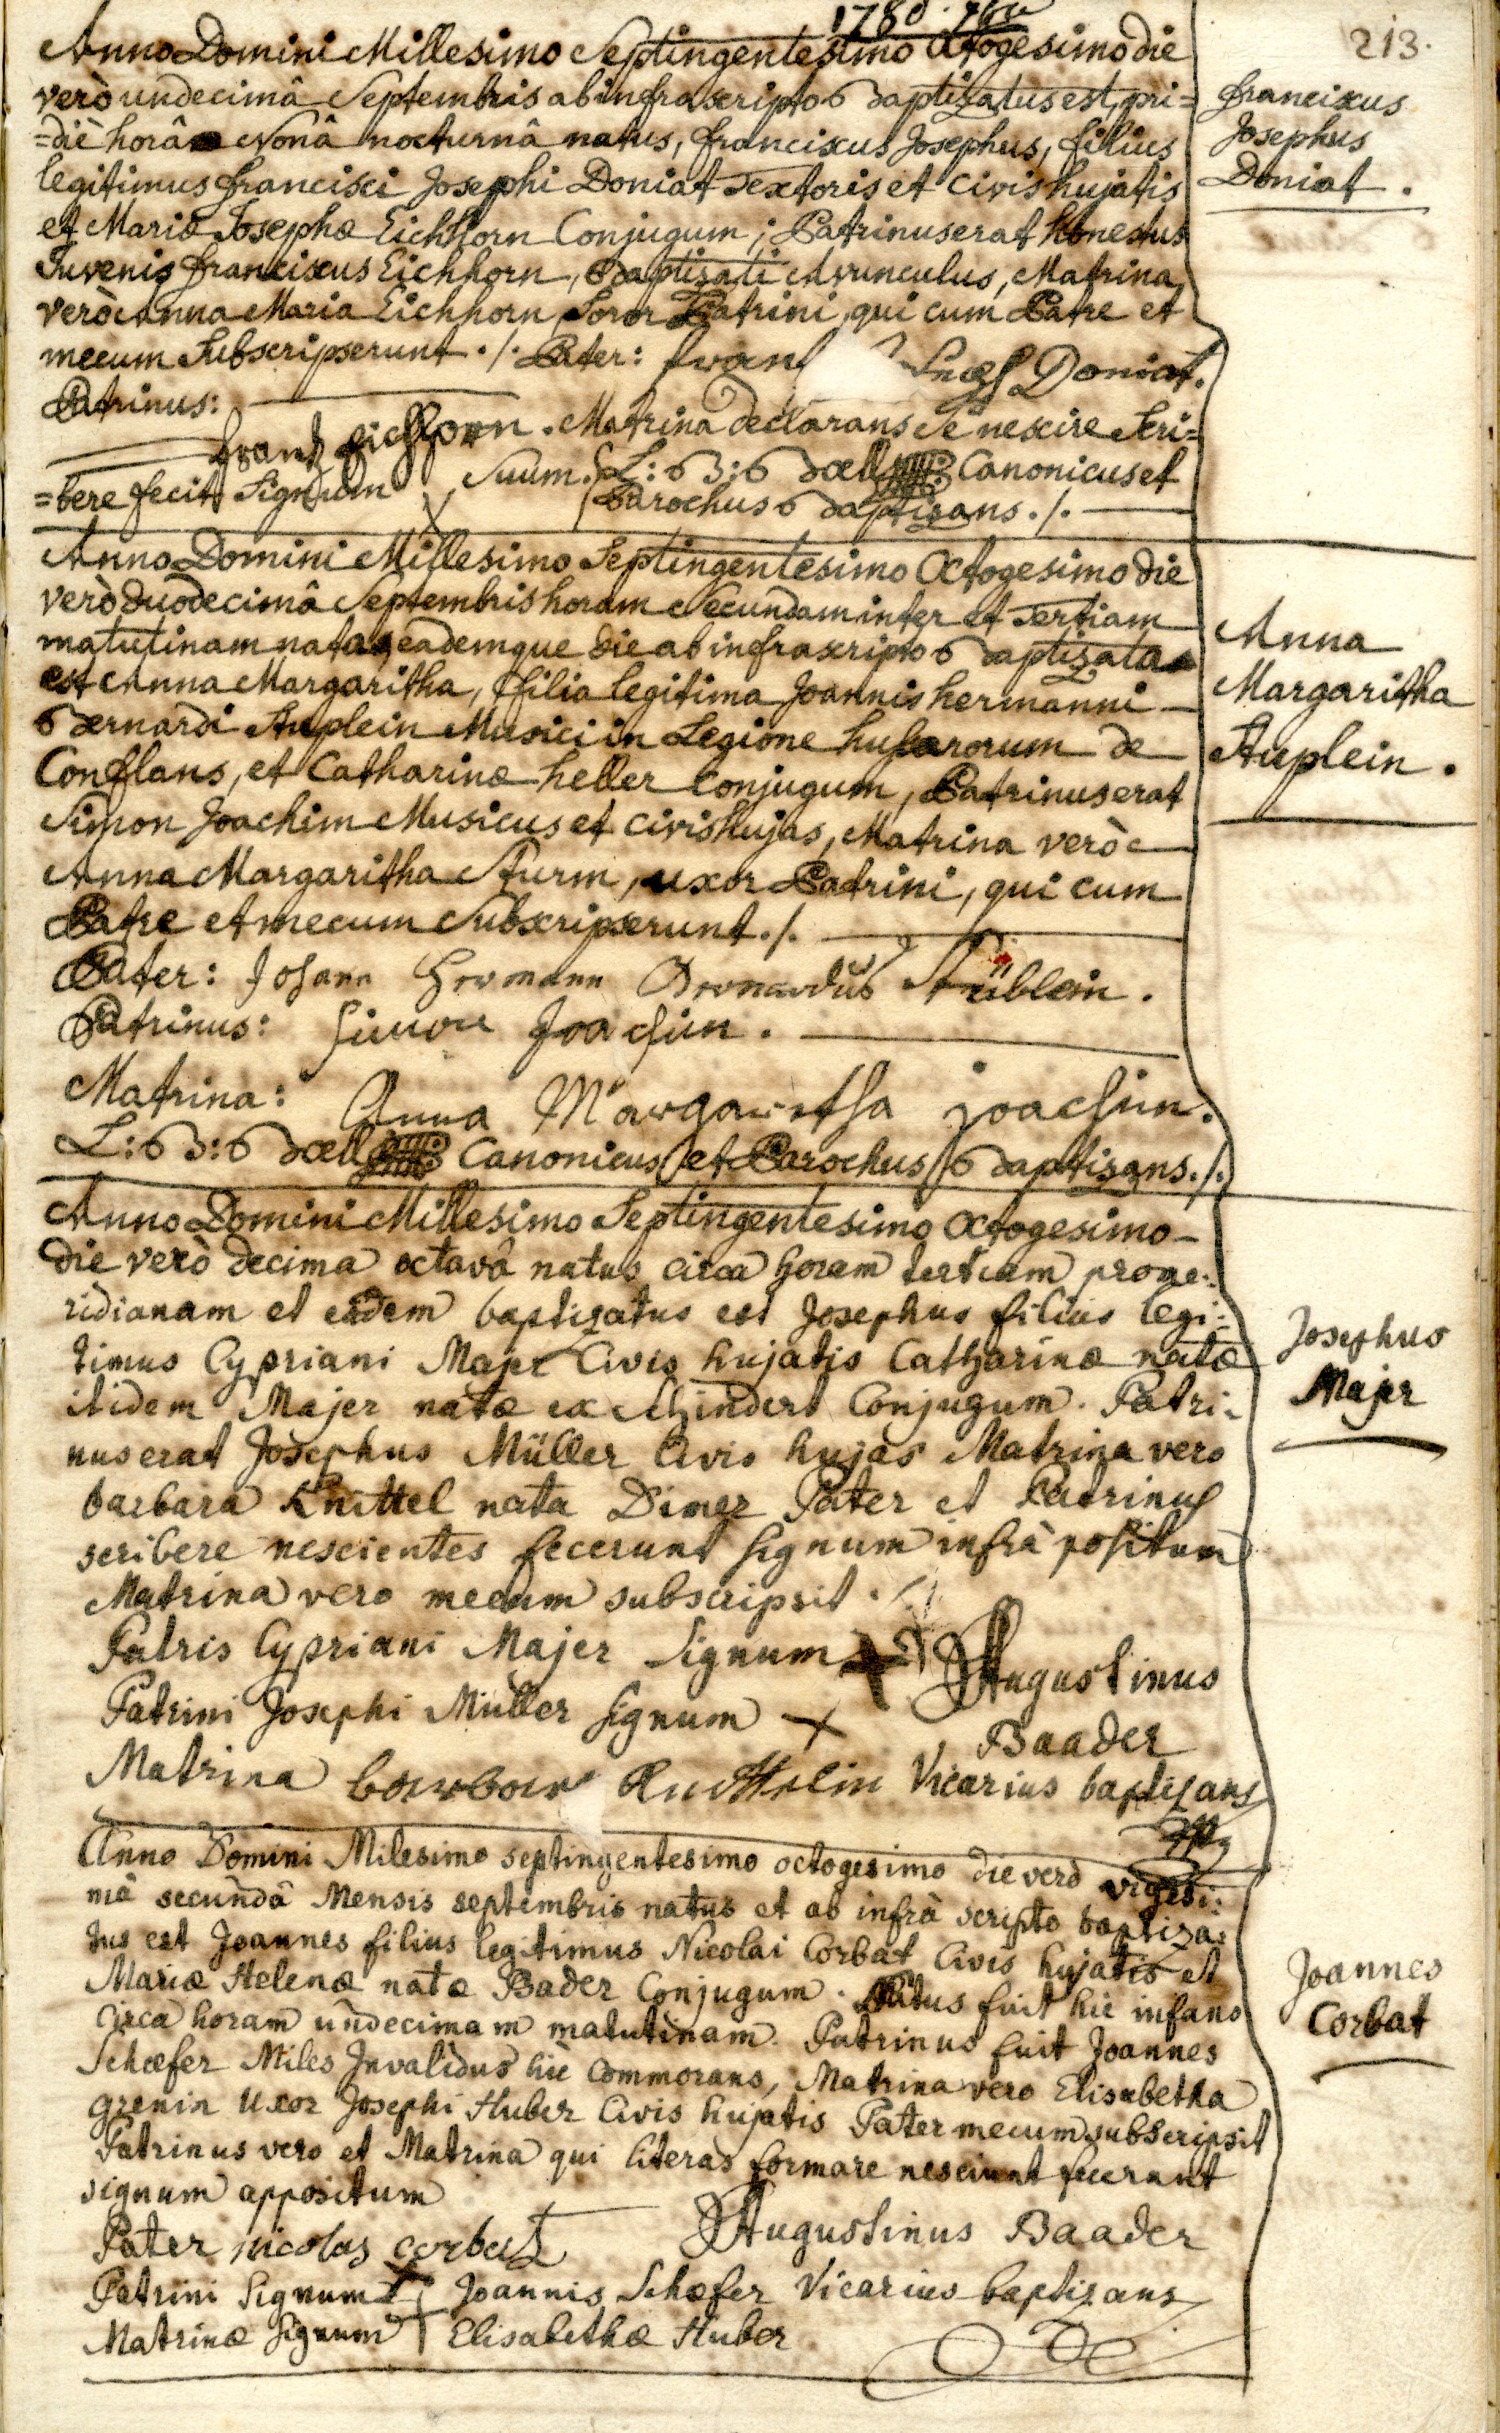 1780. 7bre
213.
Anno Domini Millesimo Septingentesimo Octogesimo die
verò undecimâ Septembris ab infrascripto Baptizatus est, pri=
=diè horâ Nonâ nocturnâ natus, franciscus Josephus, filius
legitimus francisci Josephi Doniat Textoris et Civis hujatis
et Mariæ Josephæ Eichhorn Conjugum; Patrinus erat honestus
Juvenis franciscus Eichhorn, Baptizati Avunculus, Matrina
verò Anna Maria Eichhorn, Soror Patrini, qui cum Patre et
mecum Subscripserunt ./. Pater: Doniat.
Patrinus:
frantz eichhorn. Matrina declarans Se nescire Scri=
=bere fecit Signum X Suum. L: B: Bæll Canonicus et
Parochus Baptizans ./.
franciscus
Josephus
Doniat.
Anno Domini Millesimo Septingentesimo Octogesimo die
verò duodecimâ Septembris horam Secundam inter et Tertiam
matutinam nata, eademque die ab infrascripto Baptizata
est Anna Margaritha, filia legitima Joannis hermanni
Bernardi Stuplein Musici in Legione husarorum de
Conflans, et Catharinæ heller Conjugum, Patrinus erat
Simon Joachim Musicus et Civis hujas, Matrina verò
Anna Margaritha Sturm, uxor Patrini, qui cum
Patre et mecum Subscripserunt ./.
Pater: Johann Hermann Bernardus Stüblein.
Patrinus: Simon Joachim.
Matrina: Anna Margaretha joachim.
L: B: Bæll Canonicus et Parochus Baptizans ./.
Anna
Margaritha
Stuplein.
Anno Domini Millesimo Septingentesimo Octogesimo
die verò decima octavâ natus circa horam tertiam prome:
ridianam et eâdem baptizatus est Josephus filius legi:
timus Cypriani Majer Civis hujatis Catharinæ natæ
itidem Majer natæ ex Schindert Conjugum. Patri-
nus erat Josephus Müller Civis hujas Matrina vero
barbara Knittel nata Dimer Pater et Patrinus
scribere nescientes fecerunt Signum infrà positum
Matrina vero mecum subscripsit ./.
Patris Cypriani Majer Signum + Augustinus
Patrini Josephi Müller Signum X Baader
Matrina Vicarius baptizans
Josephus
Majer
Anno Domini Milesimo septingentesimo octogesimo die verò vigesi:
mâ secùndâ Mensis septembris natus et ab infrà scripto baptiza:
tus est Joannes filius legitimus Nicolai Corbat Civis hujatis et
Mariæ Helenæ natæ Bader Conjugum. Natus fuit hic infans
circa horam undecimam matutinam. Patrinus fuit Joannes
Schæfer Miles Invalidus hìc Commorans, Matrina vero Elisabetha
grenin Uxor Josephi Huber Civis hujatis Pater mecum subscripsit
Patrinus vero et Matrina qui literas formare nesciunt fecerunt
signum appositum
Pater nicolas corbat Augustinus Baader
Patrini Signum + Joannis Schæfer Vicarius baptizans
Matrinæ Signum + Elisabethæ Huber
Joannes
Corbat